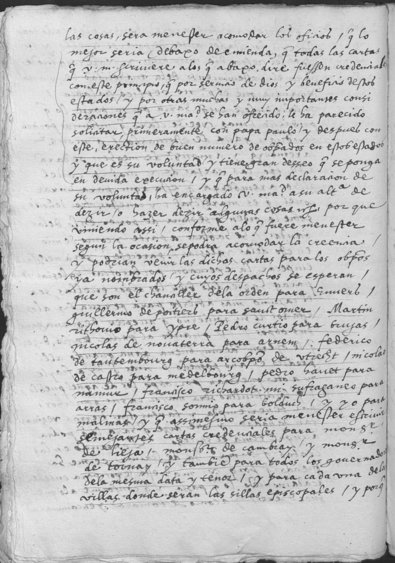 las cosas, sera menester acomodar los oficios / q̃ lo
mejor seria, debaxo de emienda, q̃ todas las cartas
q̃ v. m. scriviere a los q̃ abaxo dire fuessen credencial
con este principio, q̃ por servicio de dios y beneficio destos
estados / y por otras muchas y muy importantes consi
deraciones q̃ a v. mag.d se han ofrecido, le ha parecido
solicitar, primeramente con papa paulo y despues con
este, erection de buen numero de obispados en estos estados
y que es su voluntad y tiene gran desseo q̃ se ponga
en devida execucion / y q̃ para mas declaracion de
su voluntad, ha encargado v. mag.d a su alt.a de
dezir / o hazer dezir algunas cosas por que
viniendo assi / conforme a lo q̃ fuere menester
segun la ocasion, se podra acomodar la creencia
y podrian venir las dichas cartas para los obpos
ya nombrados y cuyos despachos se esperan /
que son el chanciller dela orden para
guillermo de poitiers para saint omer / Martin
rithovio para ypre / Pedro curtio para brujas /
nicolas de novaterra para / federico
de para arcobpo de utrecht / nicolas
de castro para medelbourg / pedro para
namur / francisco richardot mi suffraganeo para
arras / francisco sonnio para bolduc / y yo para
malinas / y q̃ assimesmo seria menester escrivir
semejantes cartas credenciales para mons.r
de lieja / mons.r de cambray / y mons.r
de tornay / y tambien para todos los governadores
dela mesma data y tenor / y para cada una de las
villas donde seran las sillas episcopales / y porq̃